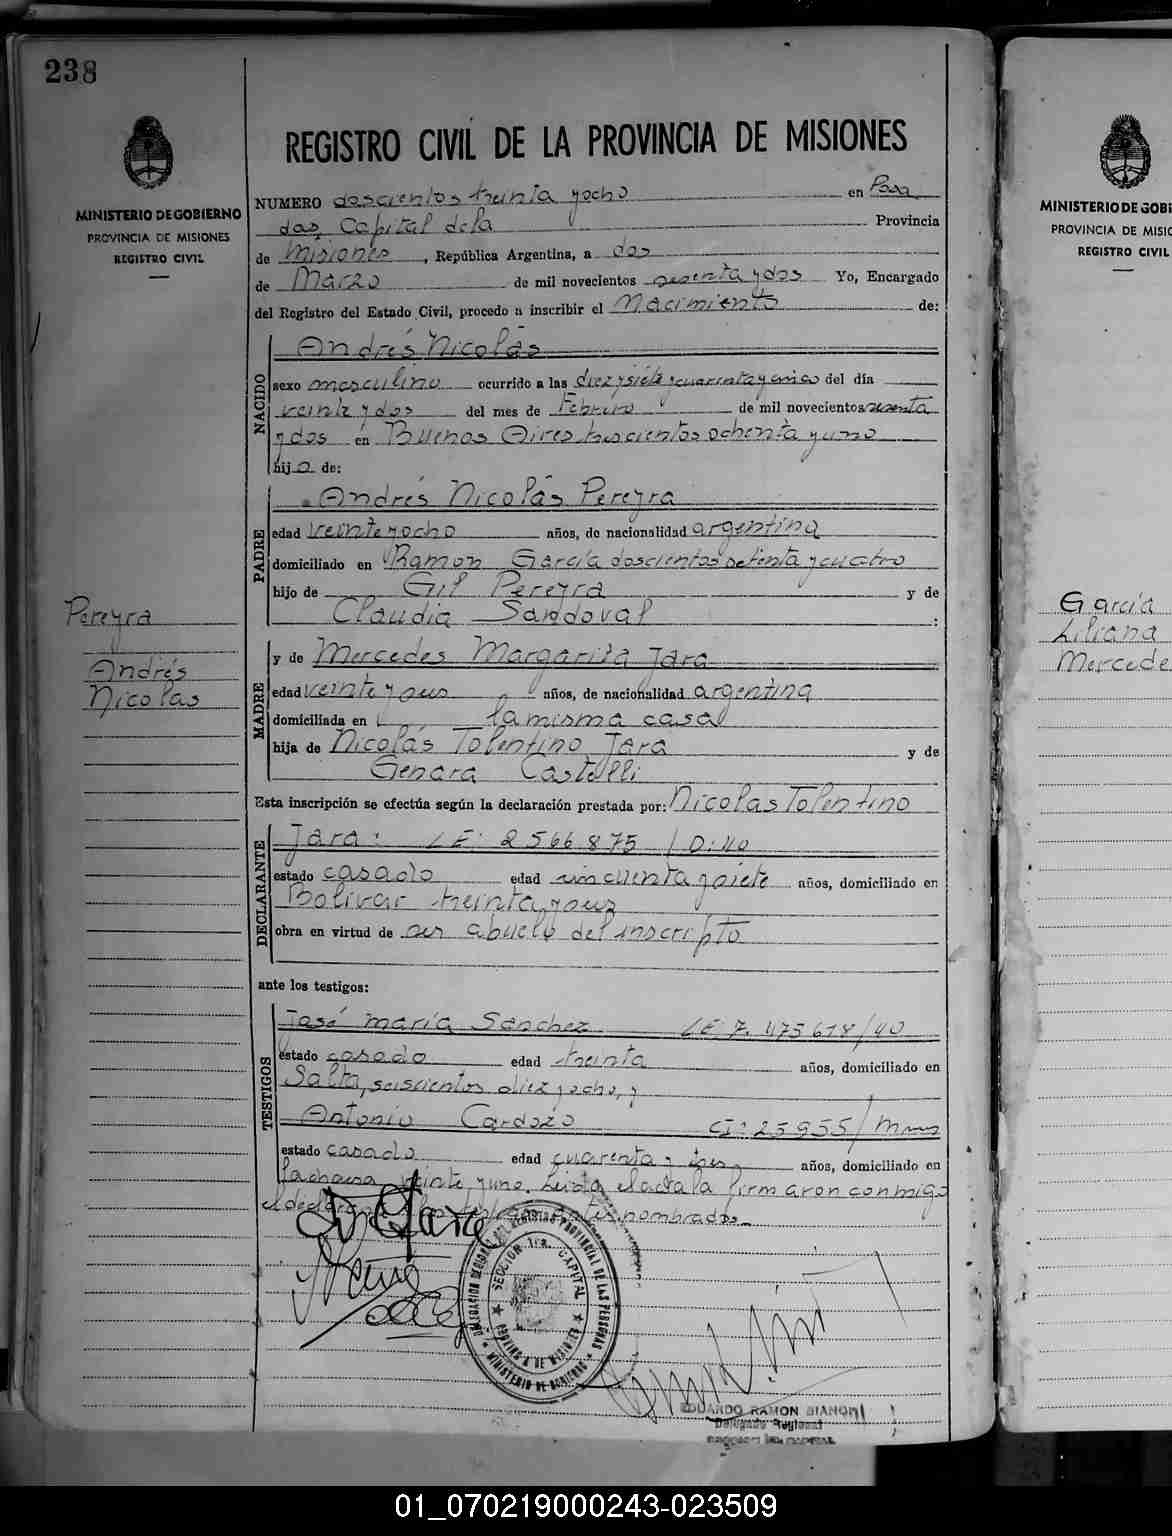 238
MINISTERIO DE GOBIERNO
PROVINCIA DE MISIONES
REGISTRO CIVIL
Pereyra
Andrés
Nicolás
REGISTRO CIVIL DE LA PROVINCIA DE MISIONES
NUMERO doscientos treinta y ocho en Posa
das, Capital de la Provincia
de Misiones, República Argentina, a dos
de Marzo de mil novecientos sesenta y dos Yo, Encargado
del Registro del Estado Civil, procedo a inscribir el Nacimiento de:
NACIDO
Andrés Nicolás
sexo masculino ocurrido a las diez y siete y cuarenta y cinco del día
veinte y dos del mes de Febrero de mil novecientos sesenta
y dos en Buenos Aires trescientos ochenta y uno
hijo de:
PADRE
Andrés Nicolás Pereyra
edad veinte y ocho años, de nacionalidad argentina
domiciliado en Ramon García doscientos setenta y cuatro
hijo de Gil Pereyra y de
Claudia Sandoval :
MADRE
y de Mercedes Margarita Jara
edad veinte y años, de nacionalidad argentina
domiciliada en la misma casa
hija de Nicolás Tolentino Jara y de
Genara Castelli
Esta inscripción se efectúa según la declaración prestada por: Nicolas Tolentino
DECLARANTE
Jara: LE: 2566875 / D:40
estado casado edad cincuenta y siete años, domiciliado en
Bolivar treinta y
obra en virtud de ser abuelo del inscripto
ante los testigos:
TESTIGOS
José maría Sanchez LE 7.475678/40
estado casado edad treinta años, domiciliado en
Salta, seiscientos diez y ocho, y
Antonio Cardozo CI: 25955/Mnes
estado casado edad cuarenta y tres años, domiciliado en
veinte y uno. Leida el acta la firmaron conmigo
el declarante y los testigos antes nombrados.
DELEGACION REGIONAL DEL REGISTRO PROVINCIAL DE LAS PERSONAS
SECCION 1ra. CAPITAL
PROVINCIA DE MISIONES
MINISTERIO DE GOBIERNO
EDUARDO RAMON BIANCHI
Delegado Regional
MINISTERIO DE GOBI
PROVINCIA DE MISIO
REGISTRO CIVIL
García
Liliana
Mercede
01_070219000243-023509